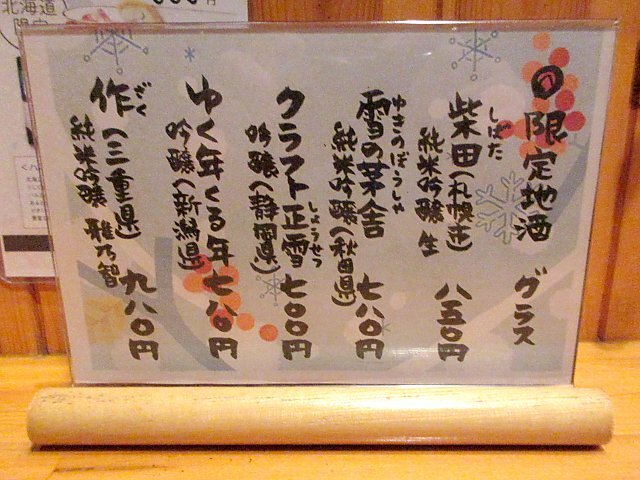 限定地酒 グラス
しばた
柴田(札幌市)
純米吟醸 生 八五〇円
ゆきのぼうしゃ
雪の茅舎
純米吟醸(秋田県) 七八〇円
クラフト正雪
しょうせつ
吟醸(静岡県) 七〇〇円
ゆく年くる年
吟醸(新潟県) 七八〇円
ざく
作(三重県)
純米吟醸 雅乃智 九八〇円
北海道
限定